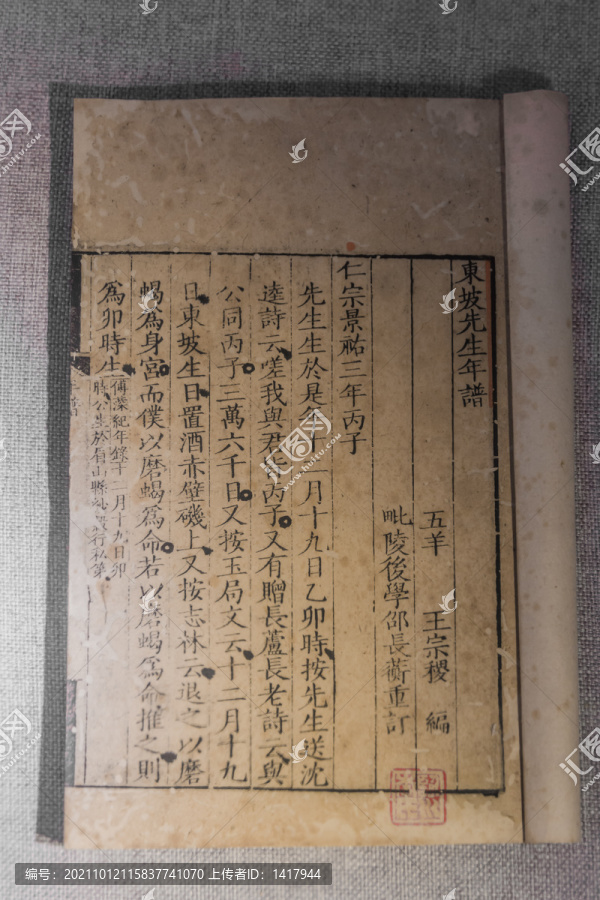 東坡先生年譜
五羊 王宗稷 編
毗陵後學邵長蘅重訂
仁宗景祐三年丙子
先生生於是年十二月十九日乙卯時按先生送沈
逵詩云嗟我與君皆丙子又有贈長蘆長老詩云與
公同丙子三萬六千日又按玉局文云十二月十九
日東坡生日置酒赤壁磯上又按志林云退之以磨
蝎為身宮而僕以磨蝎為命若以磨蝎為命推之則
為卯時生
傅藻紀年錄十二月十九日卯
時公生於眉山縣紗縠行私第
汇图网
www.huitu.com
编号:20211012115837741070 上传者ID:1417944